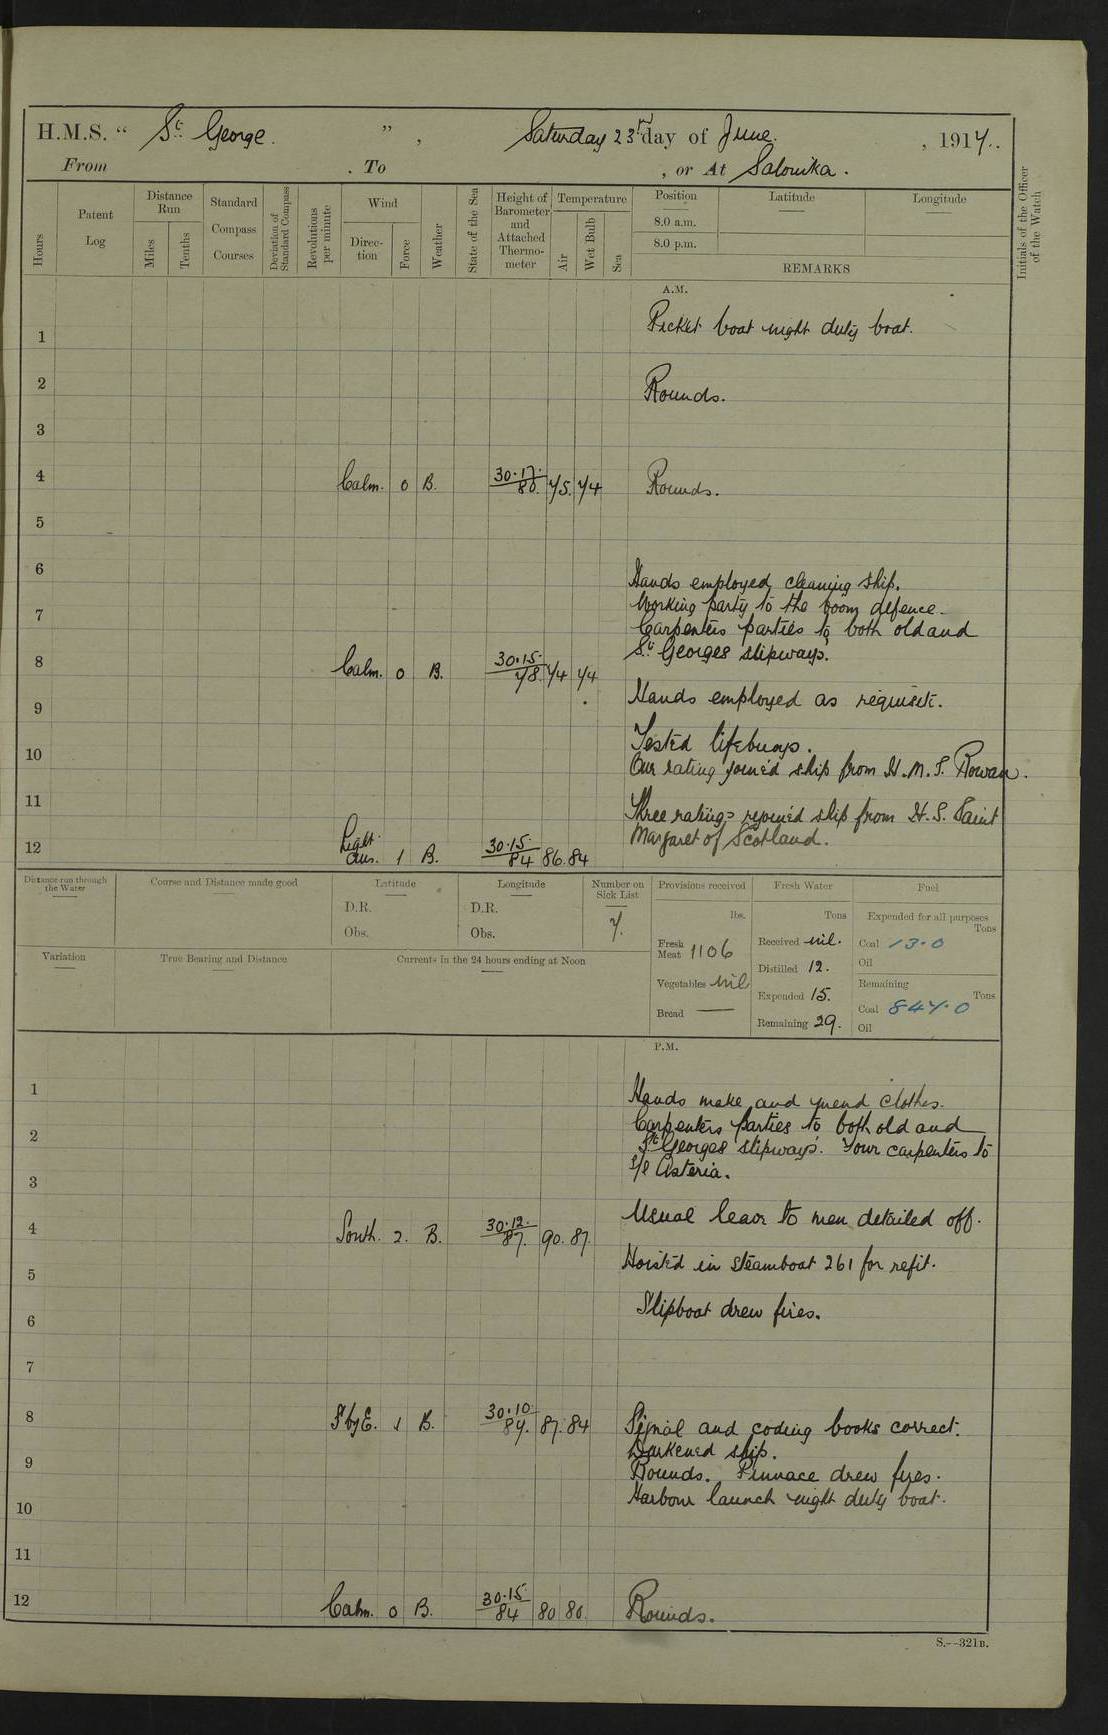 H.M.S. “ St. George. ” , Saturday 23rd day of June. , 1917.
From . To , or At Salonika.
Hours
Patent Log
Distance Run
Miles
Tenths
Standard Compass Courses
Deviation of Standard Compass
Revolutions per minute
Wind
Direc-tion
Force
Weather
State of the Sea
Height of Barometer and Attached Thermo-meter
Temperature
Air
Wet Bulb
Sea
Position
8.0 a.m.
8.0 p.m.
Latitude
Longitude
REMARKS
Initials of the Officer of the Watch
A.M.
1 Picket boat night duty boat.
2 Rounds.
3
4 Calm. 0 B. 30.17. 80. 75. 74 Rounds.
5
6 Hands employed cleaning ship.
7 Working party to the boom defence.
Carpenters parties to both old and
8 Calm. 0 B. 30.15. 78. 74 74 St. Georges slipways.
9 Hands employed as requisite.
Tested lifebuoys.
10 One rating joined ship from H.M.S. Rowan.
11 Three ratings rejoined ship from H.S. Saint
12 Light Airs. 1 B. 30.15. 84 86. 84 Margaret of Scotland.
Distance run through the Water
Course and Distance made good
Latitude
D.R.
Obs.
Longitude
D.R.
Obs.
Number on Sick List
7.
Provisions received
lbs.
Fresh Meat 1106
Vegetables nil
Bread —
Fresh Water
Tons
Received nil.
Distilled 12.
Expended 15.
Remaining 29.
Fuel
Expended for all purposes
Tons
Coal 13.0
Oil
Remaining
Tons
Coal 847.0
Oil
Variation
True Bearing and Distance
Currents in the 24 hours ending at Noon
P.M.
1 Hands make and mend clothes.
2 Carpenters parties to both old and
St Georges slipways. Four carpenters to
3 S/S Asteria.
4 South. 2. B. 30.12. 87. 90. 87. Usual leave to men detailed off.
5 Hoisted in steamboat 261 for refit.
6 Slipboat drew fires.
7
8 S by E. 1 B. 30.10 87. 84 Signal and coding books correct.
Darkened ship.
9 Rounds. Pinnace drew fires.
10 Harbour launch night duty boat.
11
12 Calm. 0 B. 30.15. 84 80 80. Rounds.
S.—321B.